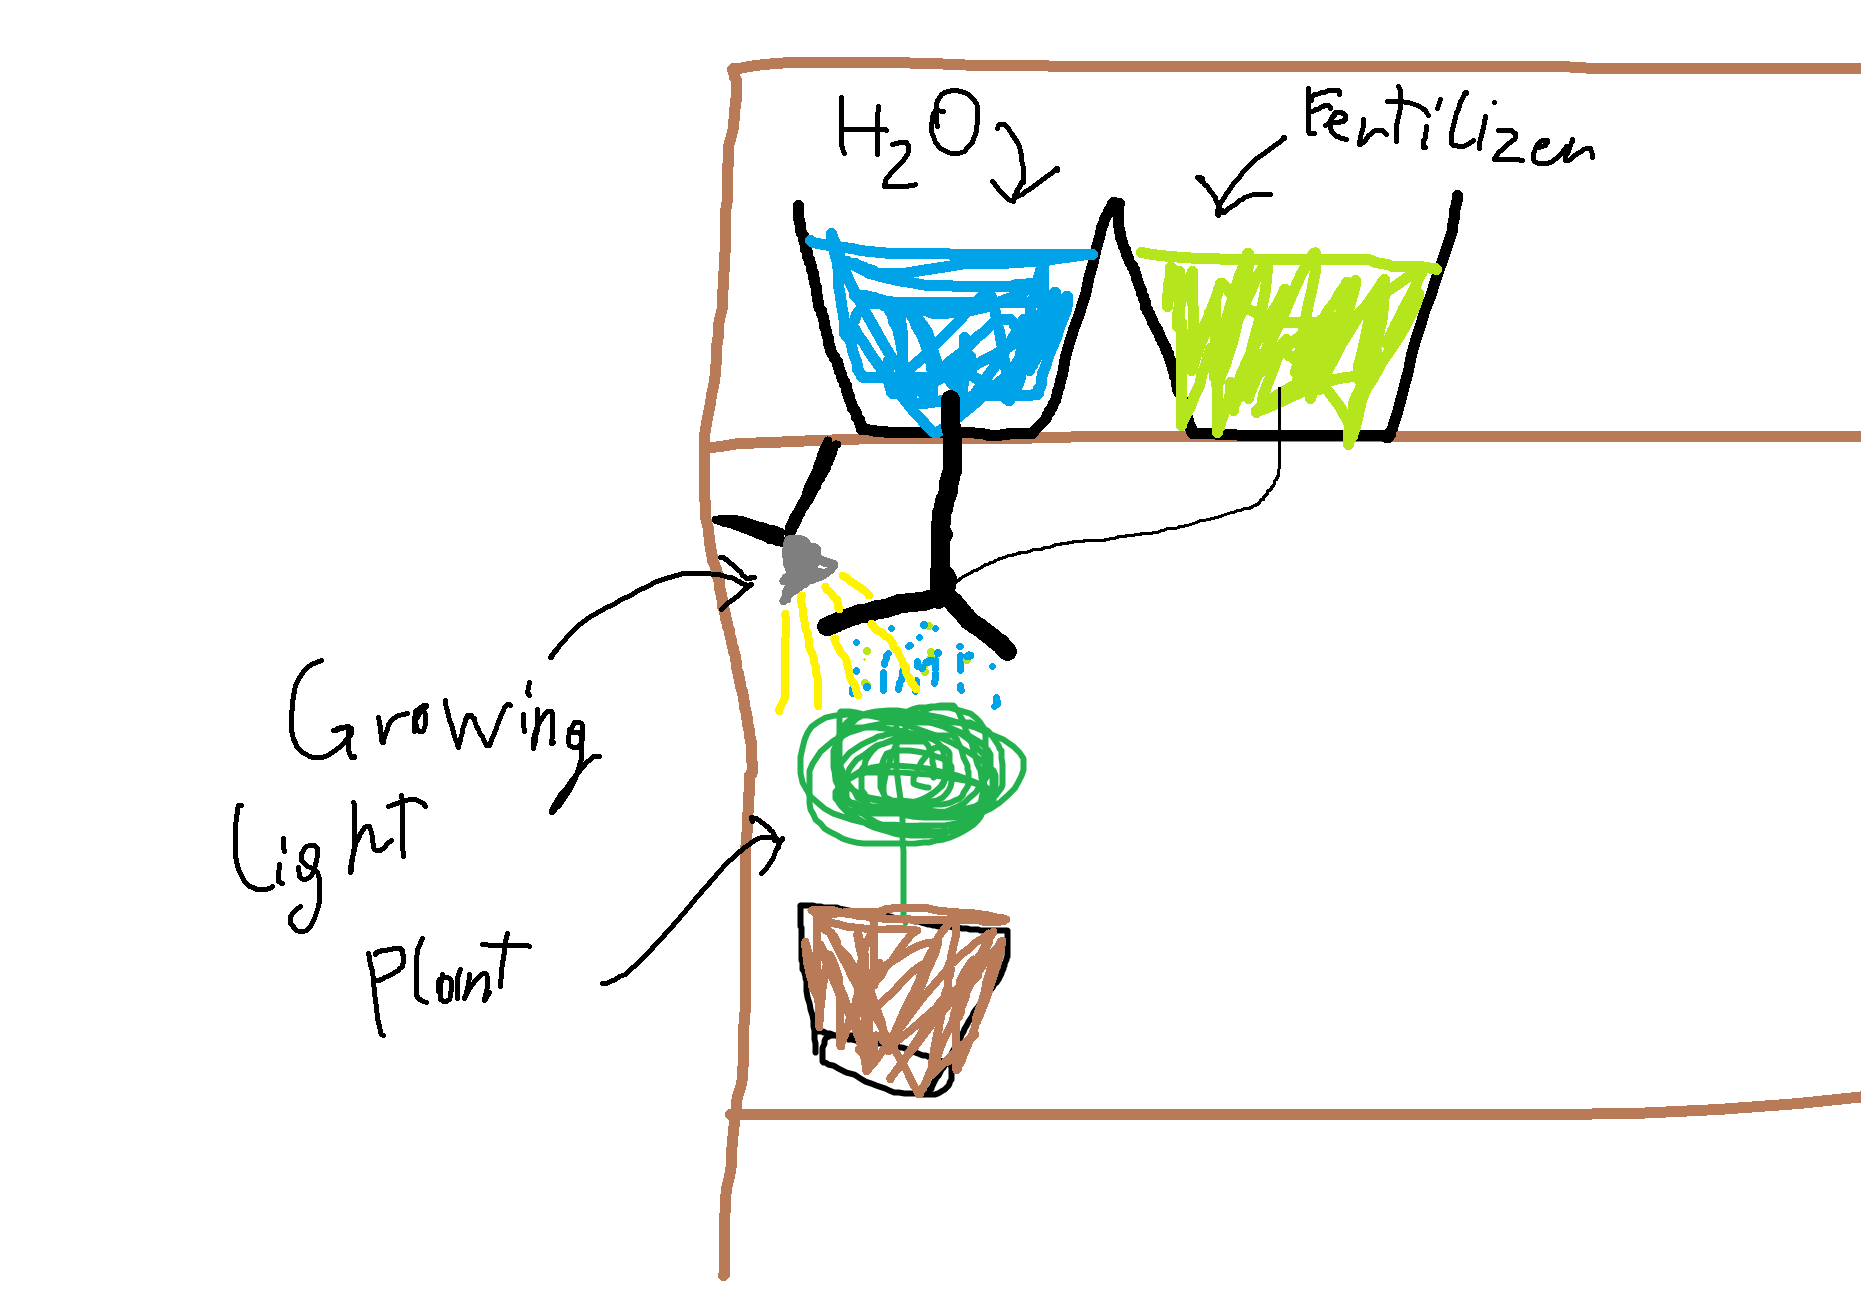 H₂O
Fertilizer
Growing
Light
Plant